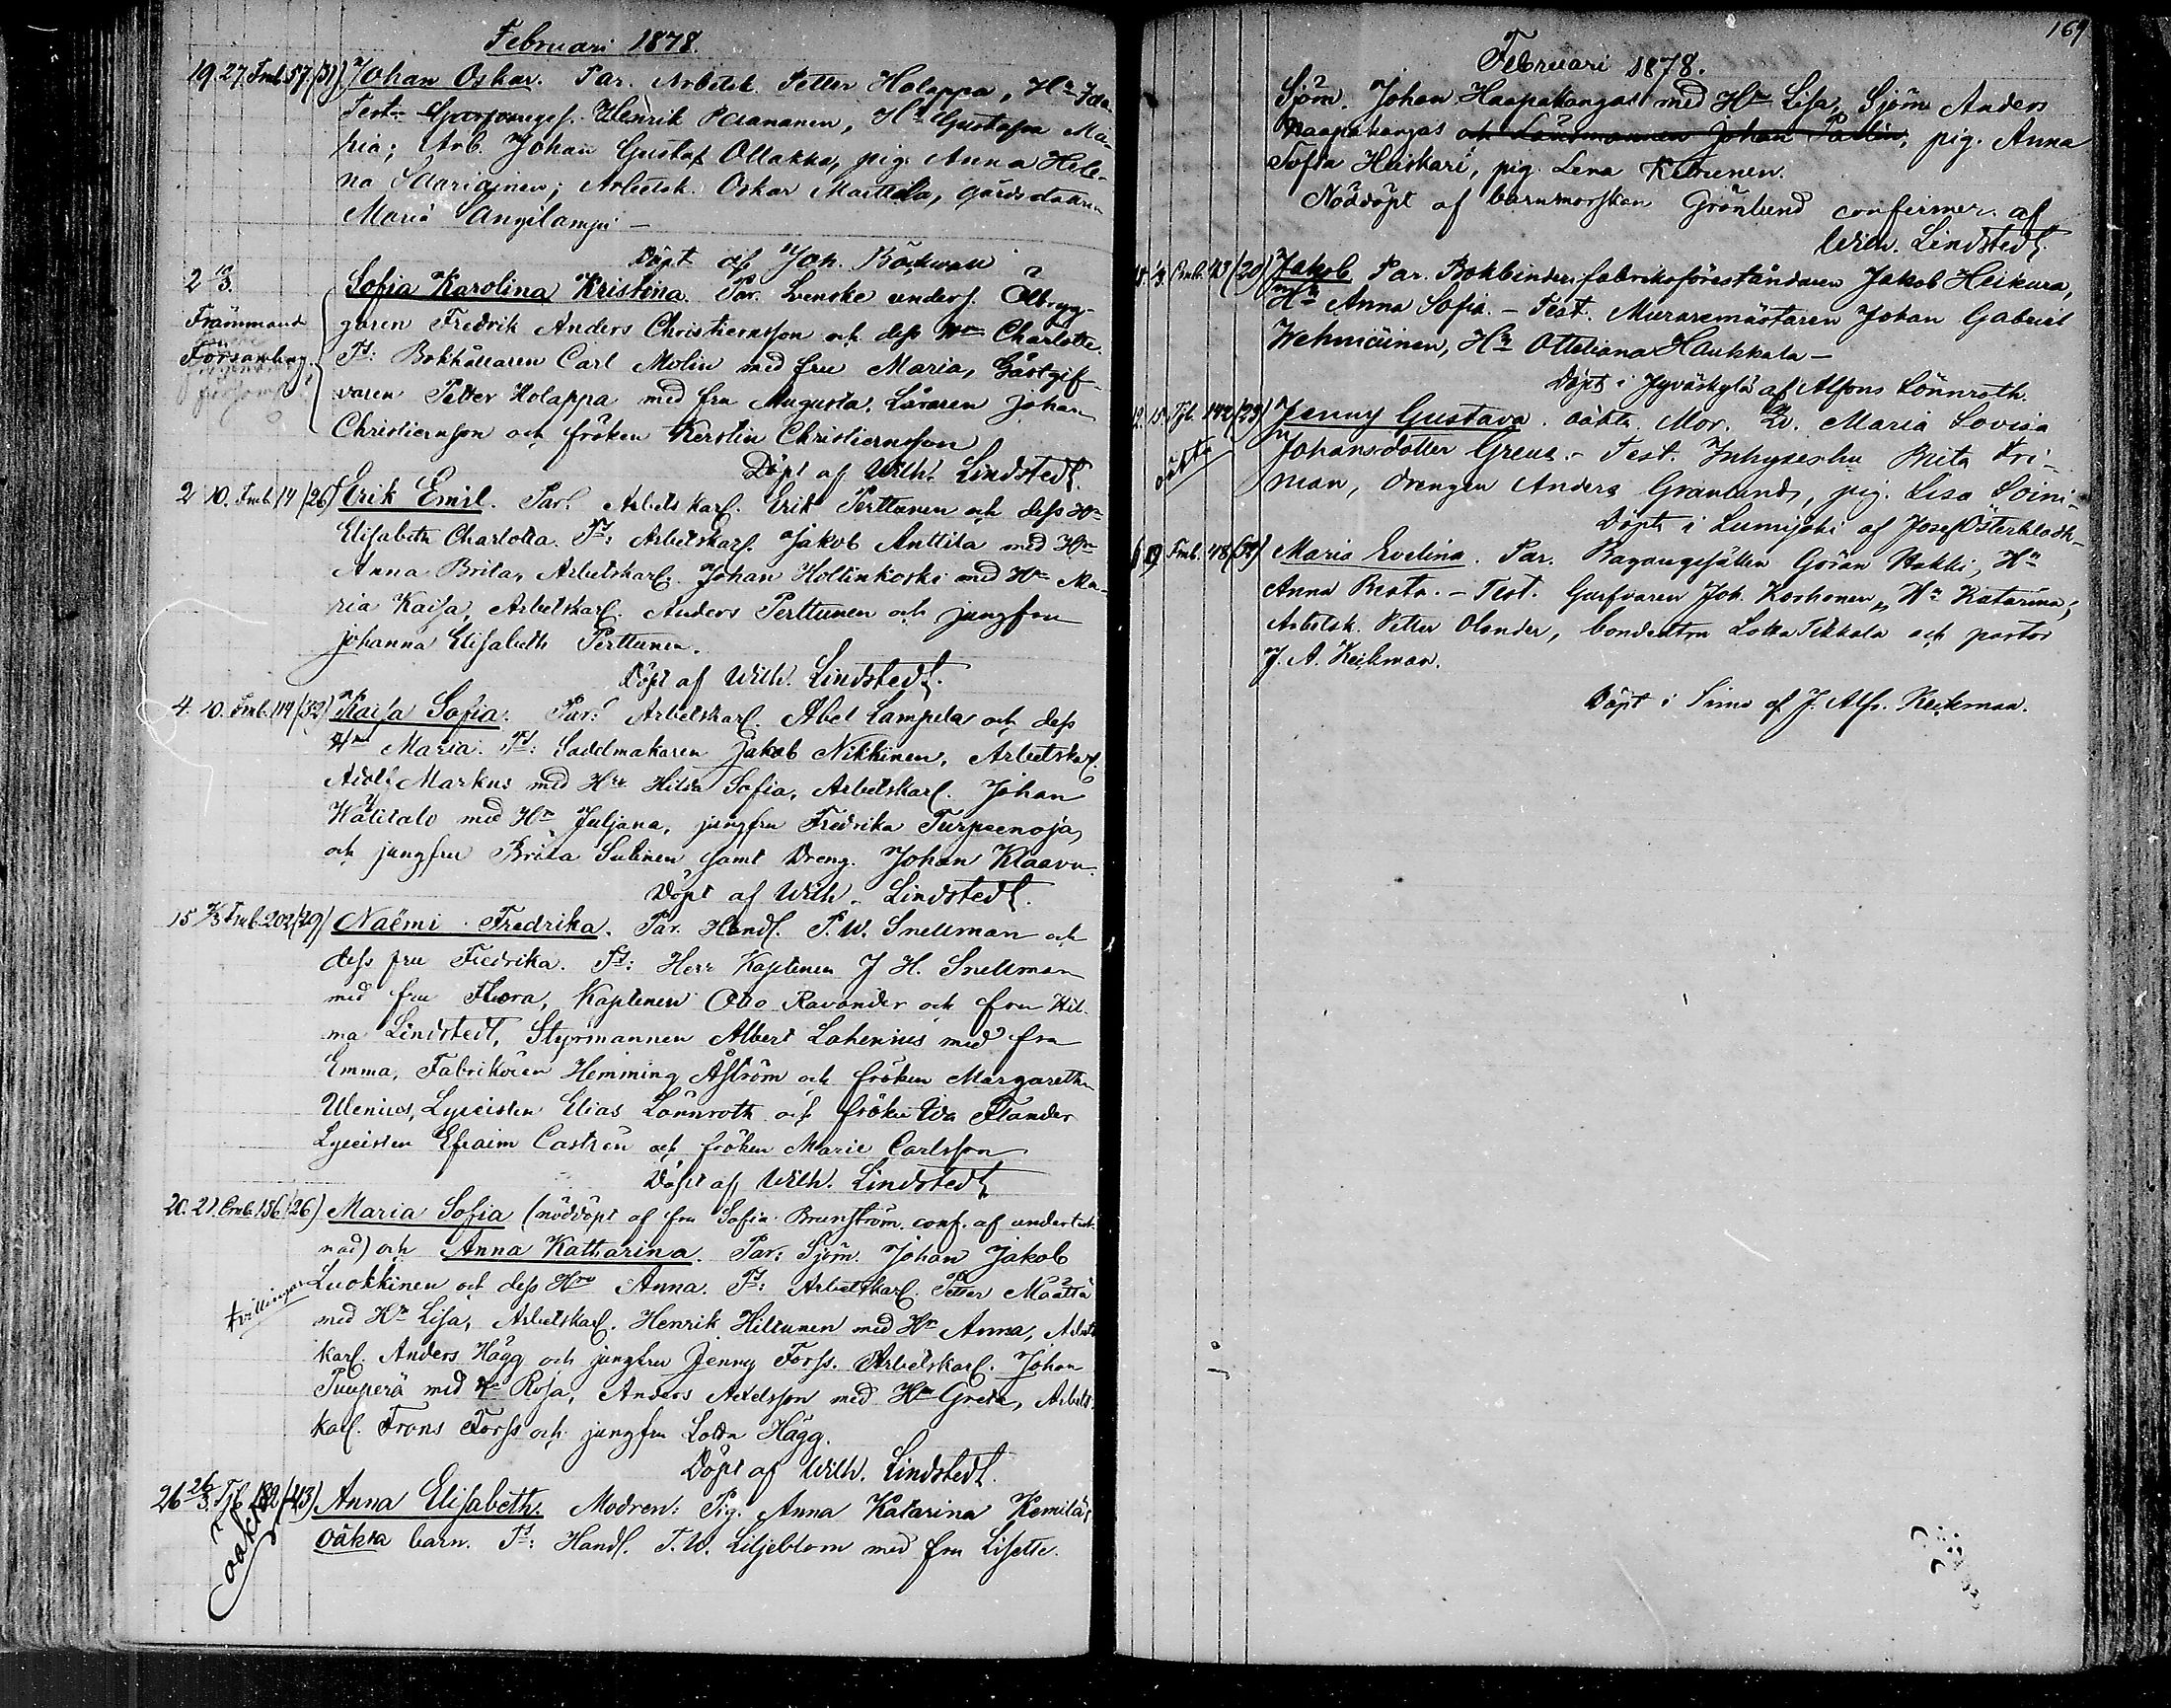 Februari 1878.
19. 27. Fmb. 57. (31) Johan Oskar. Par. Arbetsk. Petter Holappa, Hn Ida
Test. Henrik Paananen, Hn Gustafva Ma-
ria; Arb. Johan Gustaf Ollakka, pig. Anna Hele-
na; Arbetsk. Oskar Marttila, gårdsdottern
Maria Angilampi —
Döpt af Joh. Bäckvall
2 10/3 Sofia Karolina Kristina. Par. Svenske unders. Ölbryg-
Främmande
garen Fredrik Anders Christiernsson och dess Hn Charlotte.
Församling.
Ts: Bokhållaren Carl Molin med fru Maria, Gästgif-
varen Petter Holappa med fru Augusta, Läraren Johan
Christiernsson och fröken Kerstin Christiernsson
Döpt af Wilh. Lindstedt.
2 10. Fmb. 14 (26) Erik Emil. Par. Arbetskarl. Erik Perttunen och dess Hn
Elisabeth Charlotta. Ts: Arbetskarl. Jakob Anttila med Hn
Anna Brita, Arbetskarl. Johan Hollinkoski med Hn Ma-
ria Kaisa, Arbetskarl. Anders Perttunen och jungfru
Johanna Elisabeth Perttunen.
Döpt af Wilh. Lindstedt.
4. 10. Fmb. 119 (32) Kaisa Sofia. Par: Arbetskarl. Abel Lampela och dess
Hn Maria. Ts: Sadelmakaren Jakob Nikkinen, Arbetskarl.
Adolf Markus med Hn Hilda Sofia, Arbetskarl. Johan
Kätitalo med Hn Juljana, jungfru Fredrika Turpeenoja,
och jungfru Brita Sulinen samt Dreng. Johan Klaavu.
Döpt af Wilh. Lindstedt.
15 Fmb. 202 (29) Naëmi Fredrika. Par. Handl. P. W. Snellman och
dess fru Fredrika. Ts: Herr Kaptenen J H. Snellman
med fru Flora, Kaptenen Otto Ravander och fru Hil-
ma Lindstedt, Styrmannen Albert Lahenius med fru
Emma, Fabrikören Hemming Åström och fröken Margaretha
Ulenius, Lyceisten Elias Lönnroth och fröken Ida Flander
Lyceisten Efraim Castrén och fröken Marie Carlsson
Döpt af Wilh. Lindstedt
20. 21. Fmb. 156 (26) Maria Sofia (nöddöpt af fru Sofia Brunström. conf. af underteck-
nad) och Anna Katharina. Par: Sjöm. Johan Jakob
tvillingar
Luokkinen och dess Hn Anna. Ts: Arbetskarl. Petter Määttä
med Hn Lisa, Arbetskarl. Henrik Hiltunen med Hn Anna, Arbets
karl. Anders Hägg och jungfru Jenny Forss. Arbetskarl. Johan
Puuperä med Hn Rosa, Anders Axelsson med Hn Greta, Arbets-
karl. Frans Forss och jungfru Lotta Hägg.
Döpt af Wilh. Lindstedt.
26 26/3. Tjb. 182 (43) Anna Elisabeth. Modren: Pig. Anna Katarina Kemilä,
oäkta
oäkta barn. Ts: Handl. T. W. Liljeblom med fru Lisette.
169
Februari 1878.
Sjöm. Johan Haapakangas med Hn Lisa, Sjöm Anders
Haapakangas och Länsmannen Johan Pallin, pig. Anna
Sofia Heiskari, pig. Lena Ketunen.
Nöddöpt af barnmorskan Grönlund confirmer. af
Wilh. Lindstedt.
Fmb. 43 (20) Jakob Par. Bokbinderifabriksföreståndaren Jakob Heikura,
Hn Anna Sofia. — Test. Muraremästaren Johan Gabriel
Wehniäinen, Hn Otteliana Haukkala —
Döpt i Jyväskylä af Alfons Lönnroth.
12. 15. Tjb. 142 (29) Jenny Gustava. oäkta. Mor. Maria Lovisa
oäkta
Johansdotter Greus. — Test. Inhyseshu Brita Fri-
man, drengen Anders Granlund, pig. Lisa Soini-
Döpt i Lumijoki af Josef Österbladh
Fmb. 48 Maria Evelina. Par. Göran Hakki, Hn
Anna Brita. — Test. Garfvaren Joh. Korhonen, Hn Katarina;
Arbetsk. Petter Olander, bondehru Lotta Tikkala och pastor
J. A. Keckman.
Döpt i Simo af J. Alfr. Keckman.